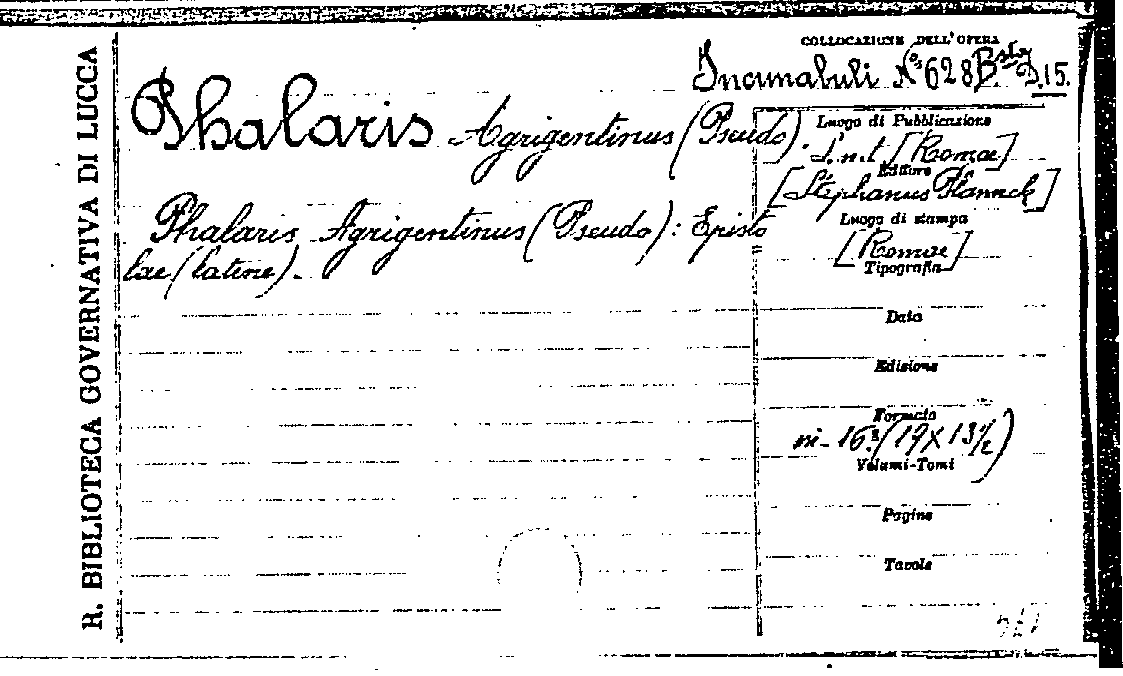 R. BIBLIOTECA GOVERNATIVA DI LUCCA
COLLOCAZIONE DELL'OPERA
Incunabuli N.º 628 Bsta D.15.
Phalaris Agrigentinus (Pseudo).
Phalaris Agrigentinus (Pseudo): Episto
lae (latine).
Luogo di Pubblicazione
S.n.t [Romae]
Editore
[Stephanus Plannck]
Luogo di stampa
[Romae]
Tipografia
Data
Edizione
Formato
in-16º (19 X 13½)
Volumi-Tomi
Pagine
Tavole